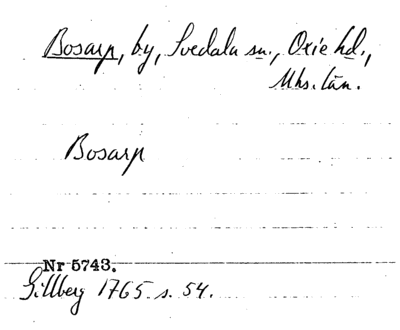 Bosarp, by, Svedala sn., Oxie hd.,
Mhs. län.
Bosarp
Nr 5743.
Gillberg 1765 s. 54.